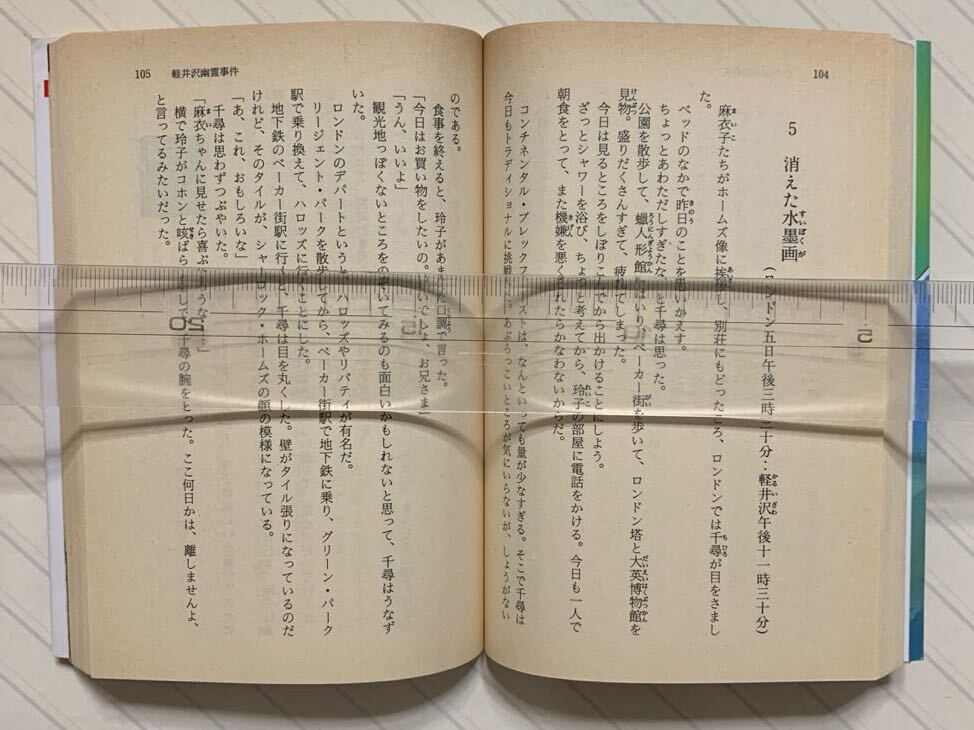 104
5 消えた水墨画
（ロンドン五日午後三時二十分：軽井沢午後十一時三十分）
麻衣子たちがホームズ像に挨拶し、別荘にもどったころ、ロンドンでは千尋が目をさまし
た。
ベッドのなかで昨日のことを思いかえす。
ちょっとあわただしすぎたな、と千尋は思った。
公園を散歩して、蠟人形館にはいり、ベーカー街を歩いて、ロンドン塔と大英博物館を
見物。盛りだくさんすぎて、疲れてしまった。
今日は見るところをしぼりこんでから出かけることにしよう。
ざっとシャワーを浴び、ちょっと考えてから、玲子の部屋に電話をかける。今日も一人で
朝食をとって、また機嫌を悪くされたらかなわないからだ。
コンチネンタル・ブレックファーストは、なんといっても量が少なすぎる。そこで千尋は
今日もトラディショナルに挑戦した。あぶらっこいところが気にいらないが、しょうがない
105 軽井沢幽霊事件
のである。
食事を終えると、玲子があまえた口調で言った。
「今日はお買い物をしたいの。いいでしょ、お兄さま」
「うん、いいよ」
観光地っぽくないところをのぞいてみるのも面白いかもしれないと思って、千尋はうなず
いた。
ロンドンのデパートというと、ハロッズやリバティが有名だ。
リージェント・パークを散歩してから、ベーカー街駅で地下鉄に乗り、グリーン・パーク
駅で乗り換えて、ハロッズに行くことにした。
地下鉄のベーカー街駅に行くと、千尋は目を丸くした。壁がタイル張りになっているのだ
けれど、そのタイルが、シャーロック・ホームズの顔の模様になっている。
「あ、これ、おもしろいな」
千尋は思わずつぶやいた。
「麻衣ちゃんに見せたら喜ぶだろうな……」
横で玲子がコホンと咳ばらいをして千尋の腕をとった。ここ何日かは、離しませんよ、
と言ってるみたいだった。
20
15
5